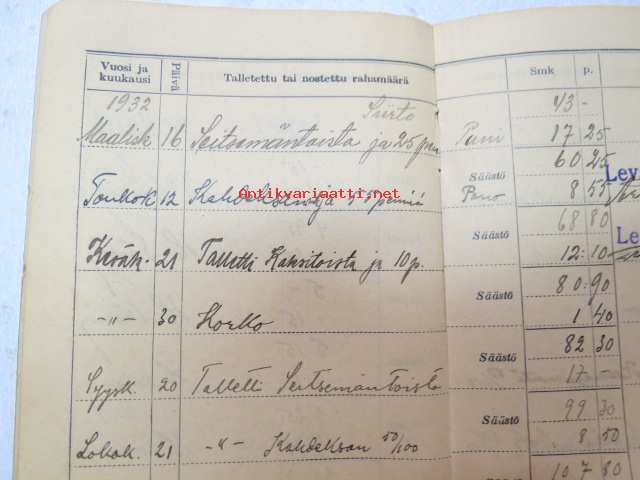 Vuosi ja kuukausi Päivä Talletettu tai nostettu rahamäärä Smk p.
1932 Siirto 43 -
Maalisk 16 Seitsemäntoista ja 25 Pani 17 25
Säästö 60 25
Lev
antikvariaatti.net
Toukok 12 Kahdeksan ja 55 penniä Pano 8 55
Säästö 68 80
Le
Kesäk. 21 Talletti Kaksitoista ja 10 p. 12:10
Säästö 80:90
-"- 30 Korko 1 40
Säästö 82 30
Syysk 20 Talletti Seitsemäntoista 17 -
Säästö 99 30
Lokak. 21 -"- Kahdeksan 50/100 8 50
107 80